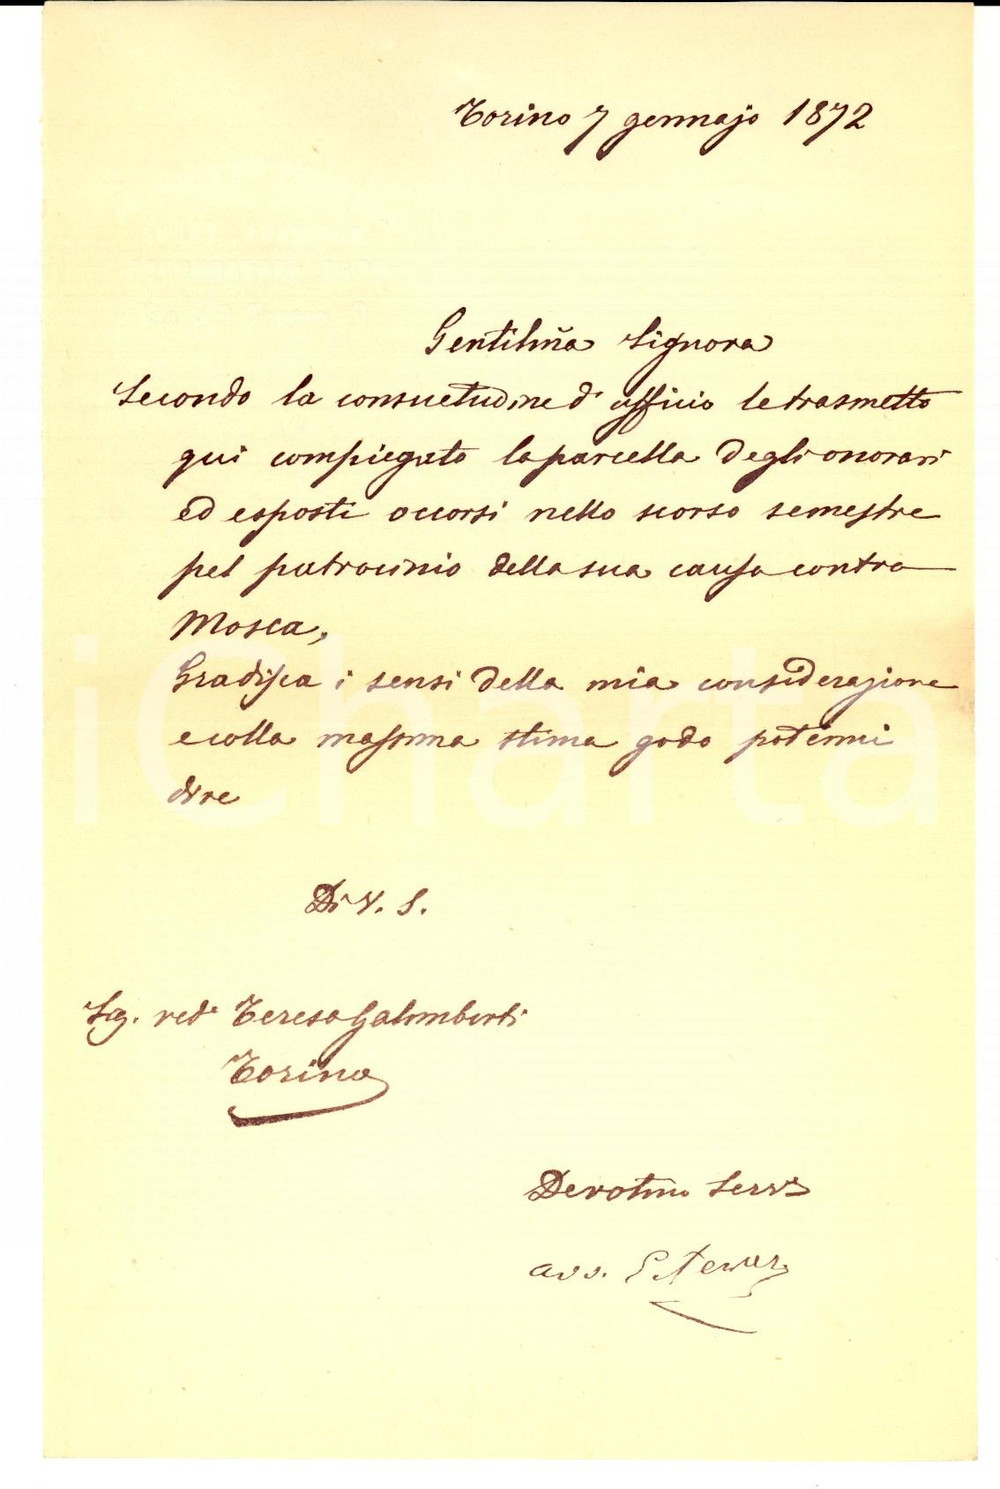 Torino 7 gennajo 1872
Gentilm̃a Signora
Secondo la consuetudine d'ufficio le trasmetto
qui compiegato la parcella degli onorari
ed esposti occorsi nello scorso semestre
pel patrocinio della sua causa contro
Mosca,
Gradisca i sensi della mia considerazione
e colla massima stima godo potermi
dire
Di V. S.
Sig. ved.a Teresa Galimberti
Torino
Devotmo Servo
avv.
iCharta